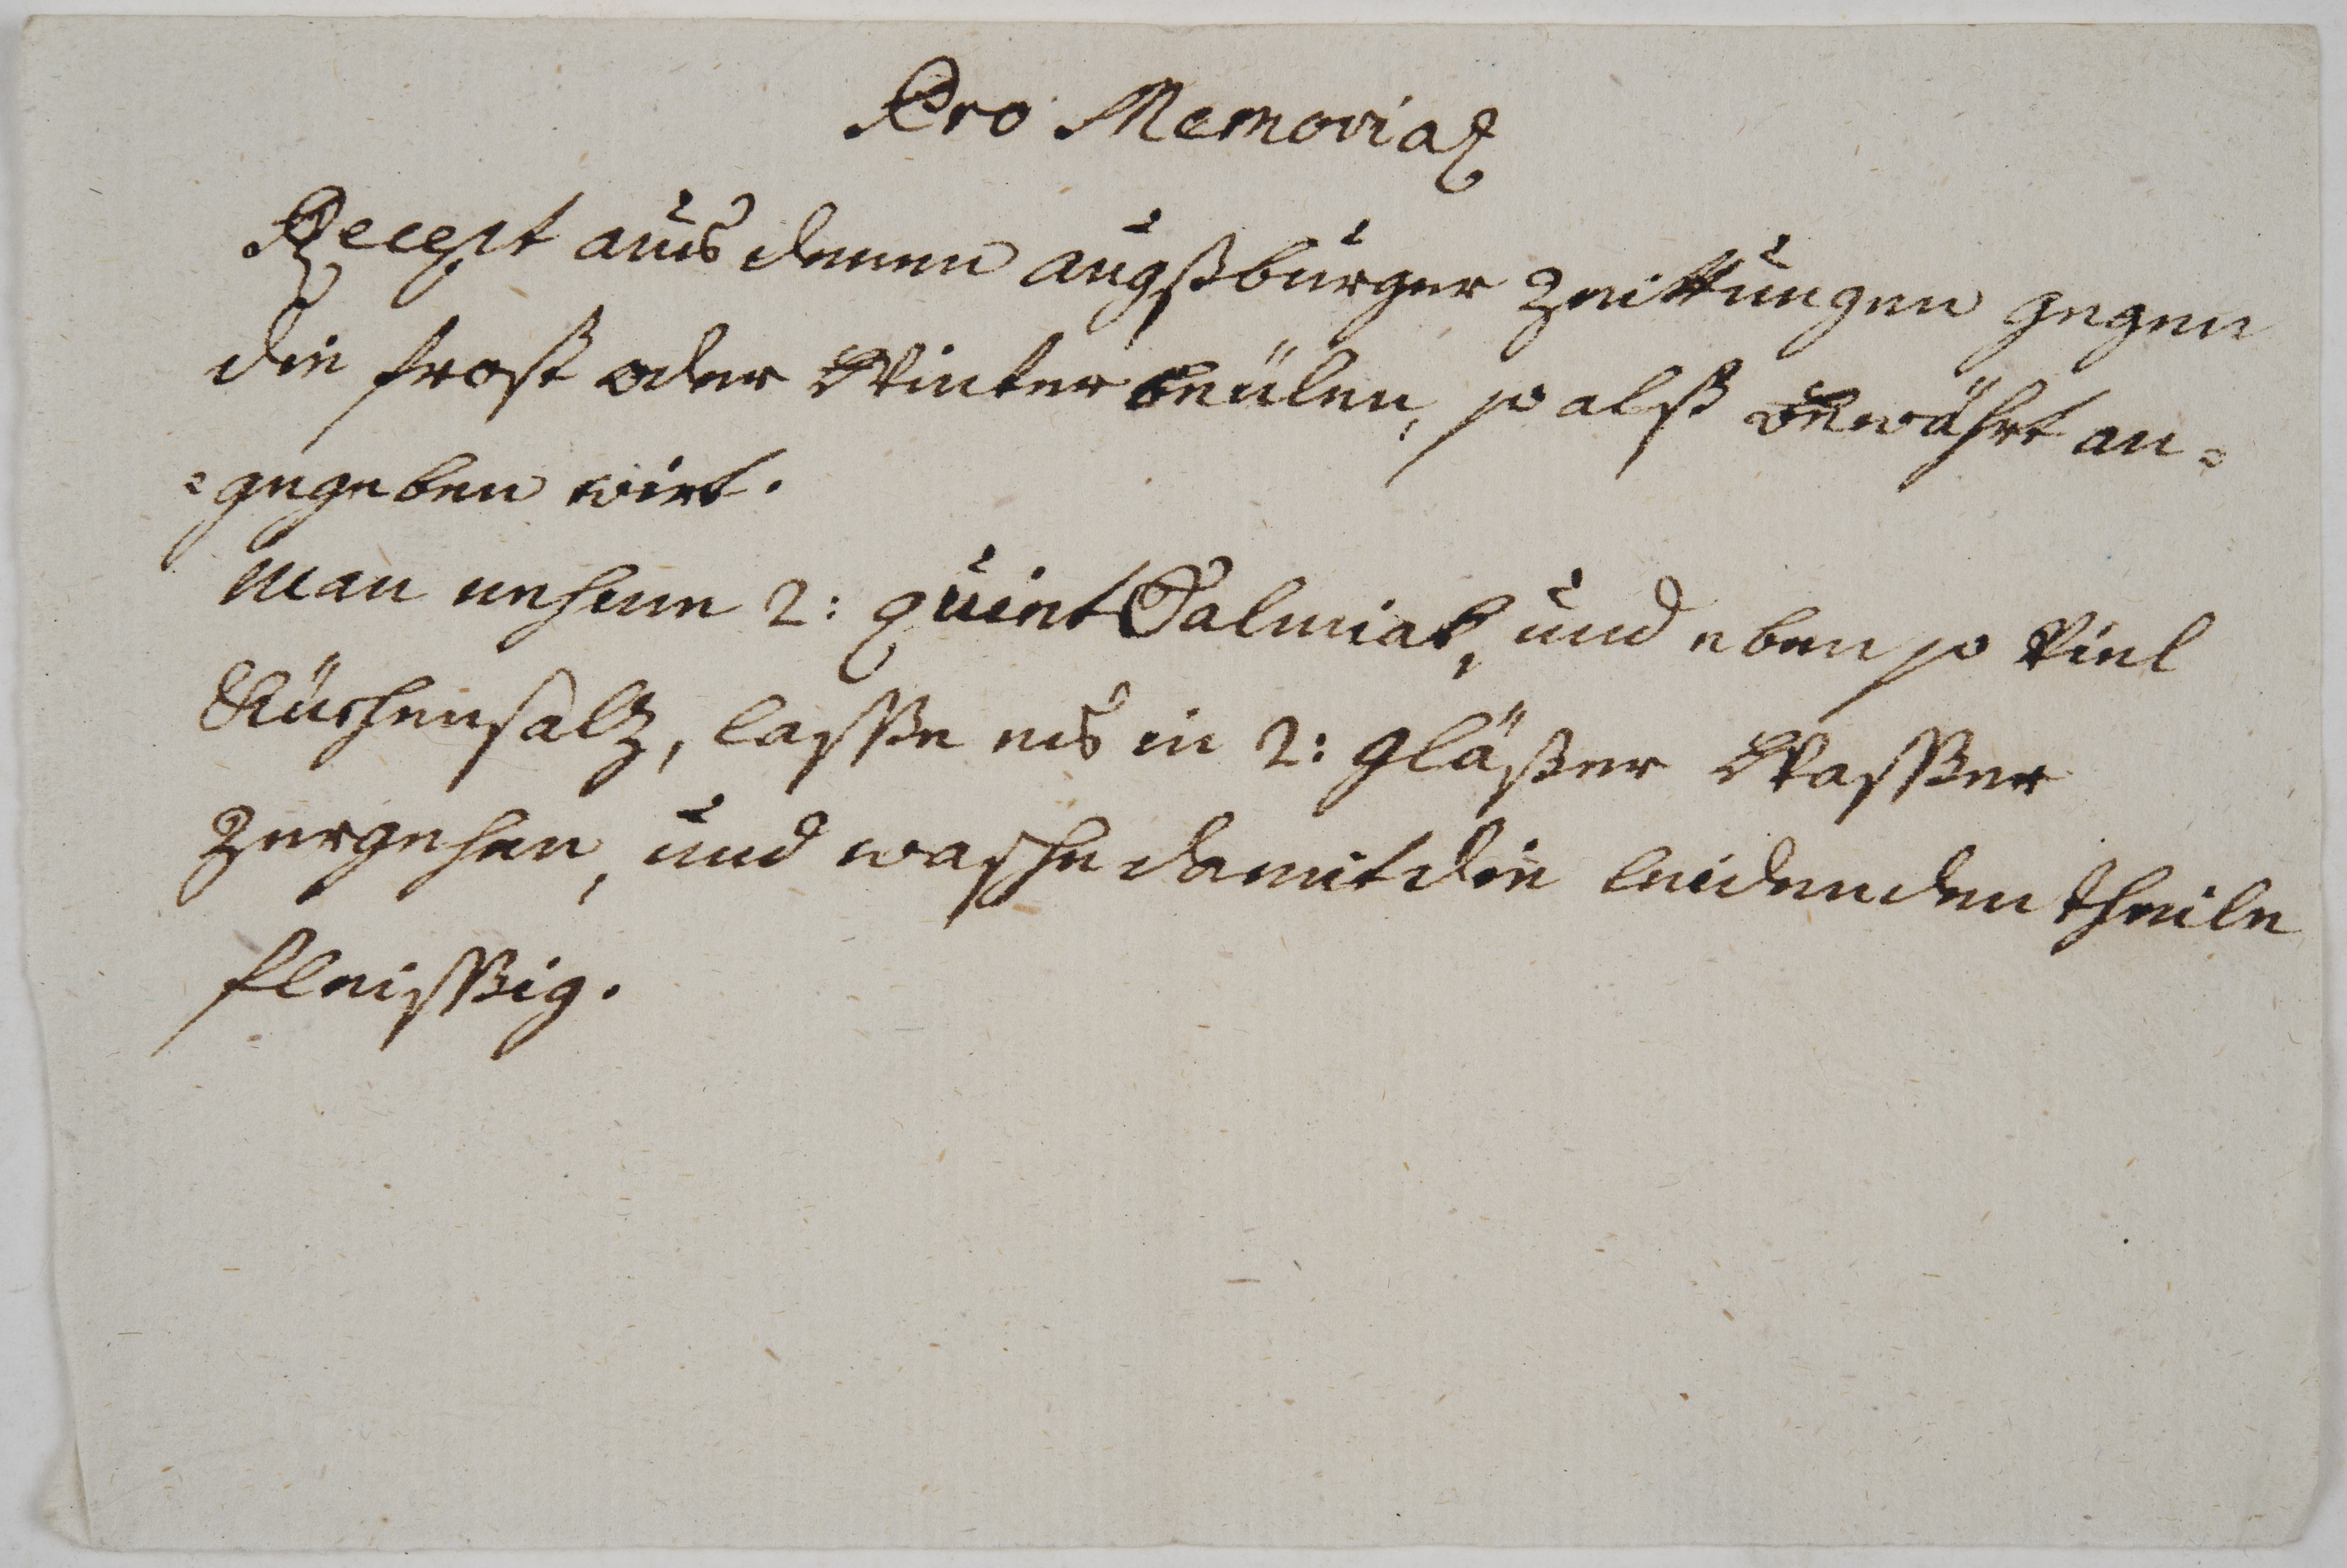 Pro Memoria
Recept aus denen augßburger Zeittungen gegen
die frost oder Winter beülen, so alß bewährt an=
=gegeben wirt.
man nehme 2: quint Salmiak, und eben so viel
Küchensaltz, lasße es in 2: gläßer Wasßer
zergehen, und wasche damit die leidenden theile
fleisßig.